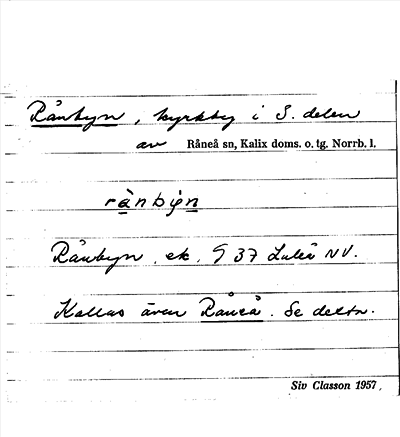 Rånbyn, kyrkby i S. delen
av Råneå sn, Kalix doms. o. tg. Norrb. l.
rånbýn
Rånbyn, ek. 9 37 Luleå NV.
Kallas även Råneå. Se detta.
Siv Classon 1957.